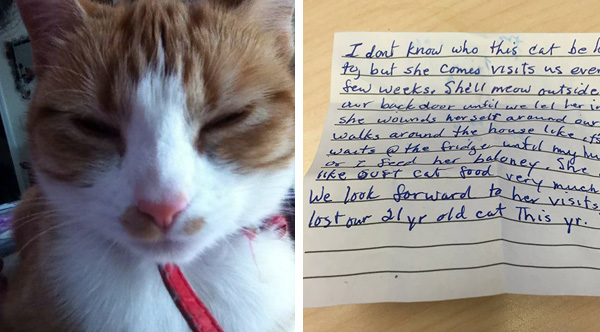 I dont know who this cat be
to, but she comes visits us
few weeks. She'll meow outside
our back door until we let her
she wounds herself around our
walks around the house like
waits @ the fridge until my
or I feed her baloney. She
like our cat food very much
We look forward to her visits
lost our 21 yr old cat This yr.